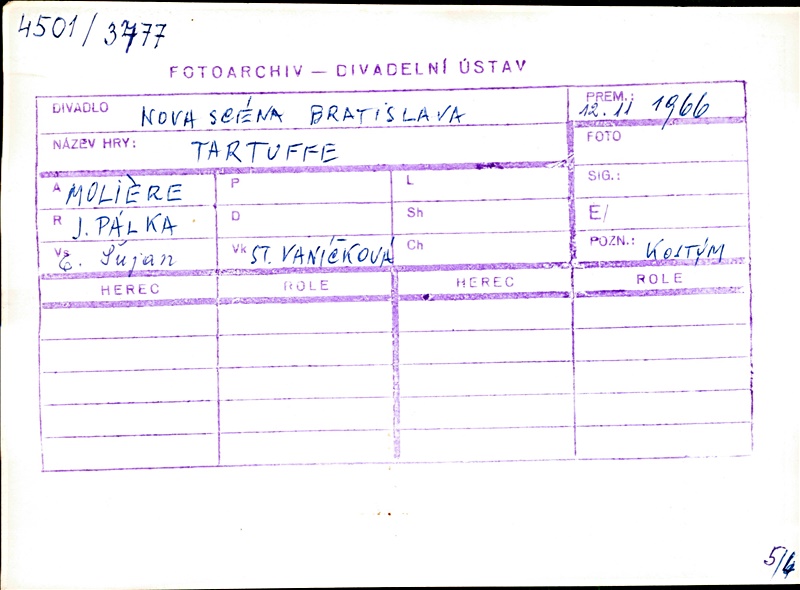 4501/3777
FOTOARCHIV — DIVADELNÍ ÚSTAV
DIVADLO NOVA SCÉNA BRATISLAVA
PREM.: 12. 11 1966
NÁZEV HRY: TARTUFFE
FOTO
A MOLIÈRE P L SIG.:
R J. PÁLKA D Sh E/
Vs E. Šujan Vk ST. VANÍČKOVÁ Ch POZN.: KOSTÝM
HEREC ROLE HEREC ROLE
5/4